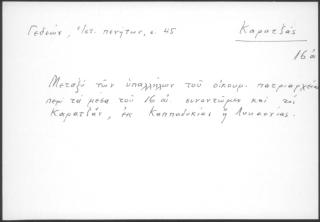 Γεδεών, Πατ. πίνακες, σ. 45.
Καρατζάς
16 αἰ
Μεταξὺ τῶν ὑπαλλήλων τοῦ οἰκουμ. πατριαρχείου
περὶ τὰ μέσα τοῦ 16 αἰ. συναντῶμεν καὶ τοὺς
Καρατζᾶν, ἐκ Καππαδοκίας ἢ Λυκαονίας.